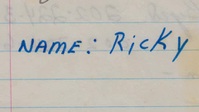 NAME: Ricky